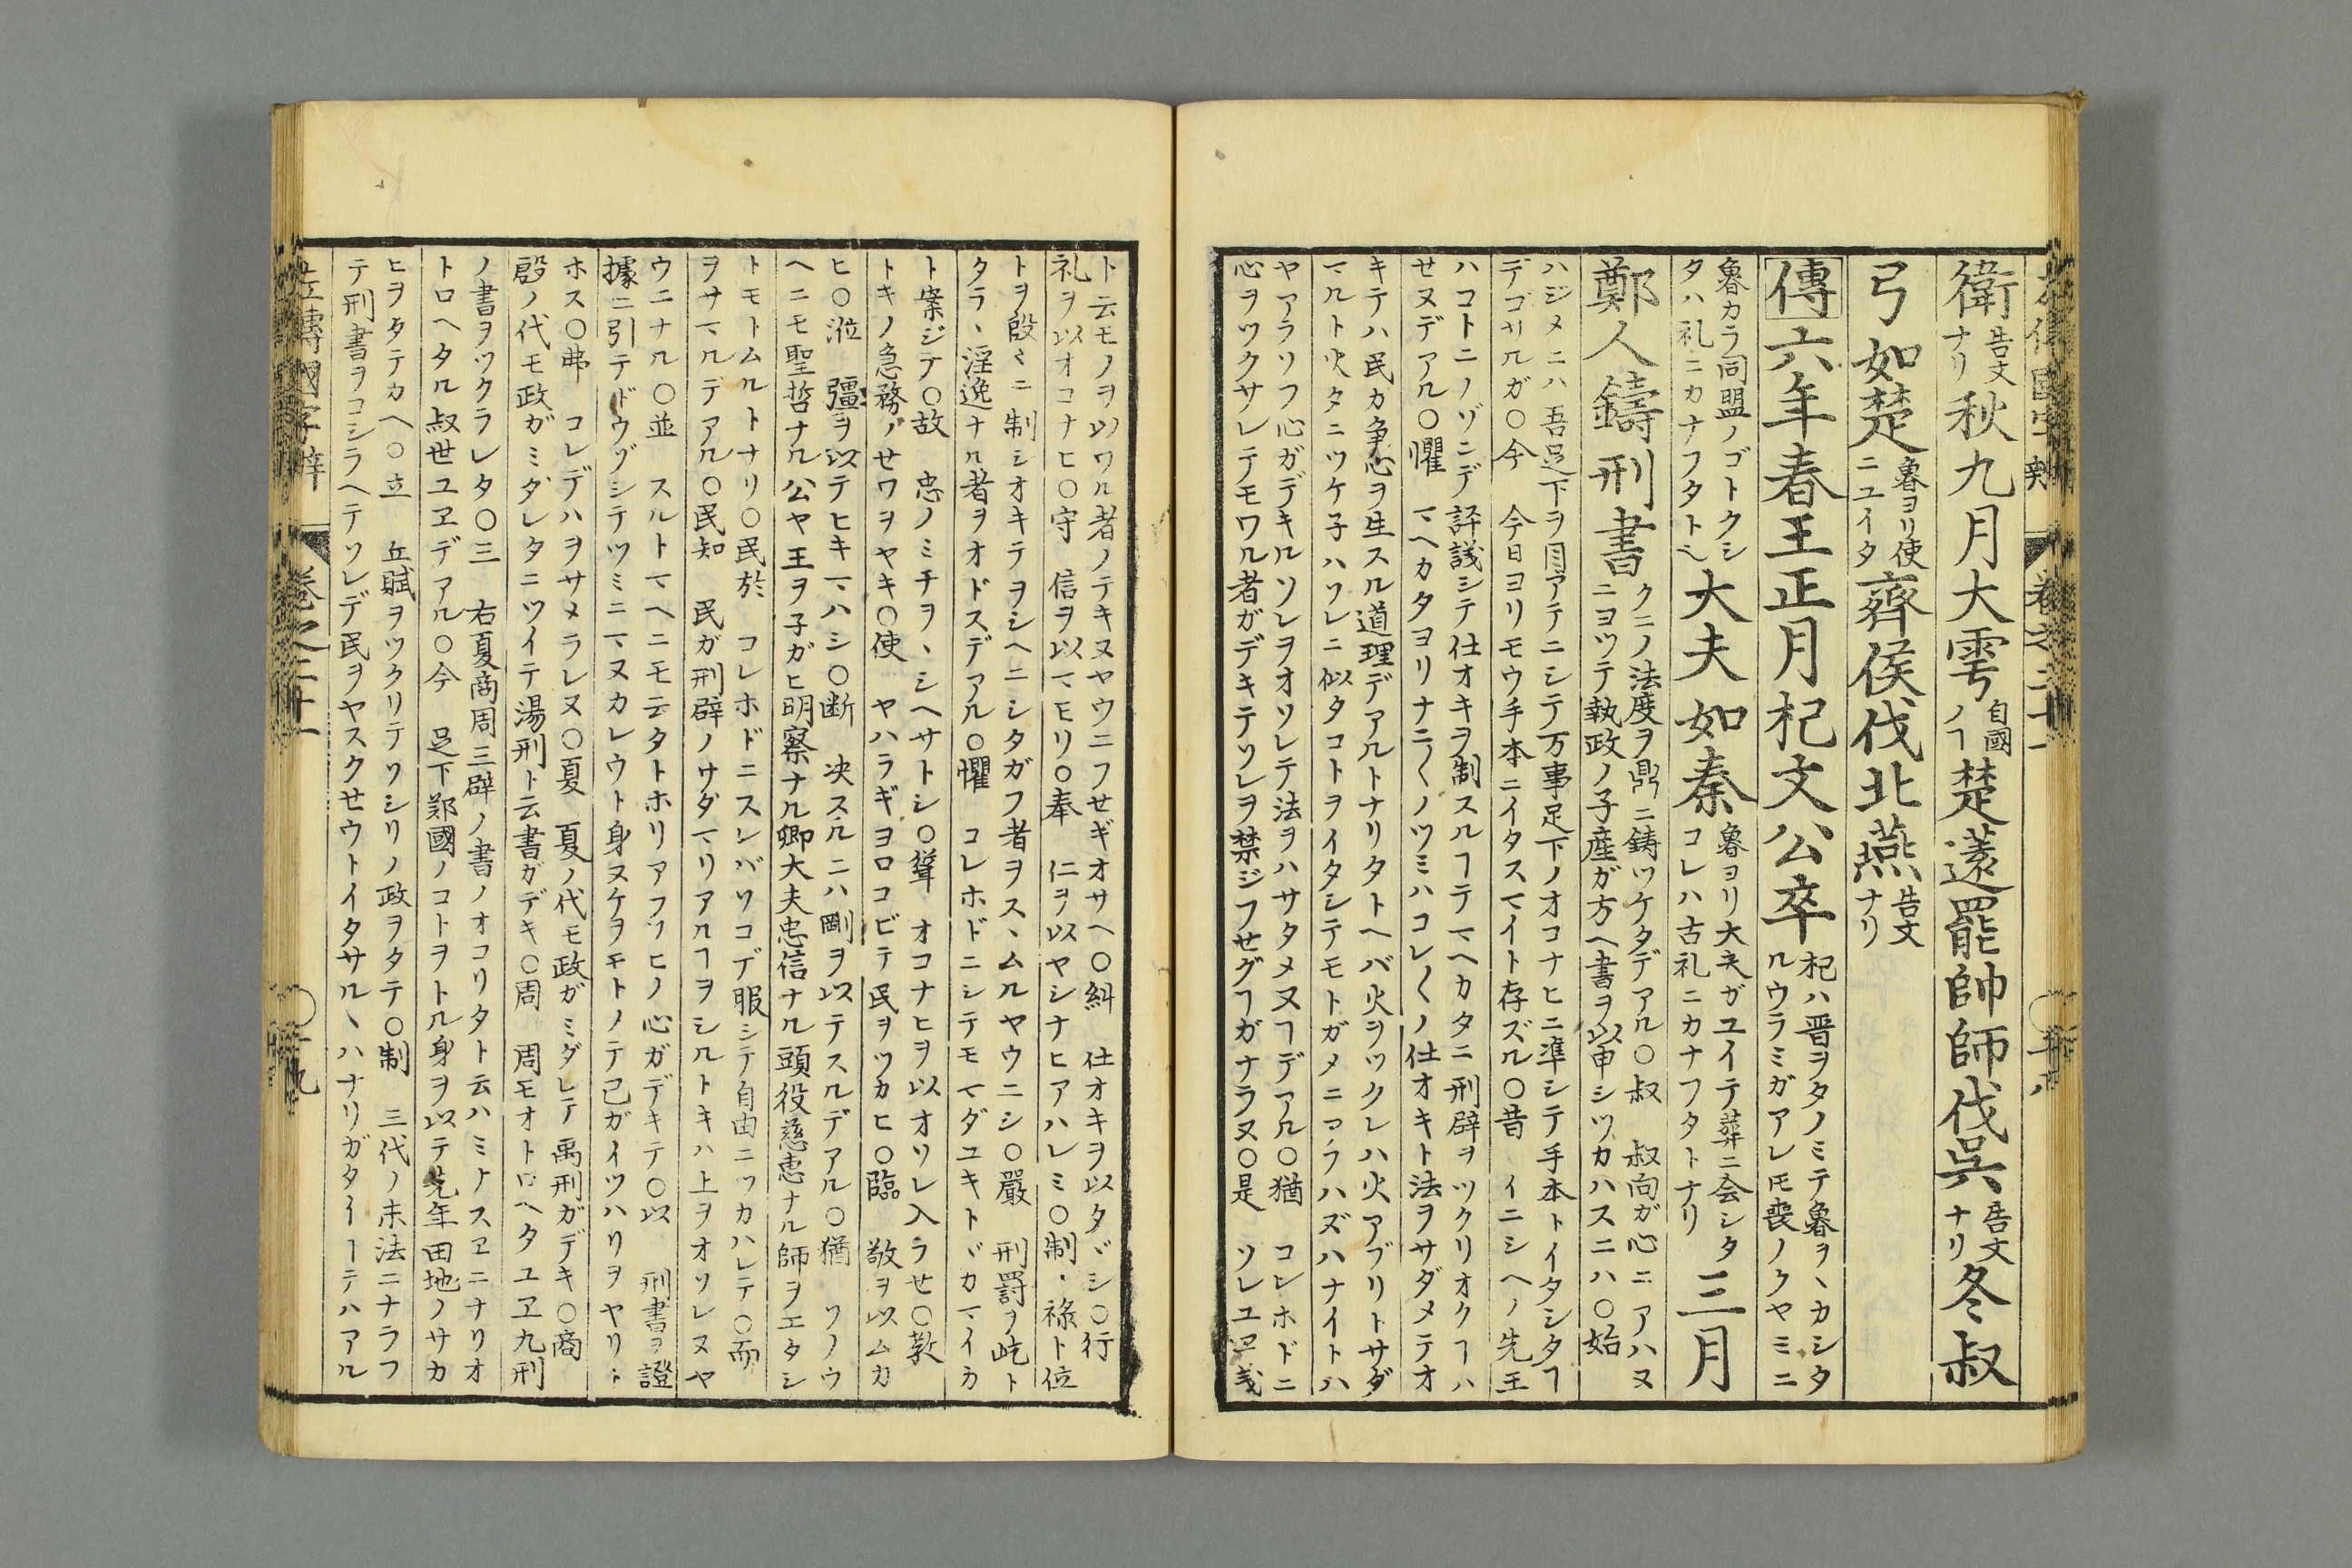 衛告文ナリ秋九月大雩自國ノヿ楚薳罷帥師伐呉告文ナリ冬叔
弓如楚魯ヨリ使ニユイタ齊侯伐北燕告文ナリ
傳六年春王正月杞文公卒杞ハ晋ヲタノミテ魯ヲヽカシタルウラミガアレ𪜈喪ノクヤミニ
魯カラ同盟ノゴトクシタハ礼ニカナフタト也大夫如秦魯ヨリ大夫ガユイテ葬ニ会シタコレハ古礼ニカナフタトナリ三月
鄭人鑄刑書クニノ法度ヲ鼎ニ鋳ツケタデアル〇叔 叔向ガ心ニアハヌニヨツテ執政ノ子産ガ方ヘ書ヲ以申シツカハスニハ〇始
ハジメニハ吾足下ヲ目アテニシテ万事足下ノオコナヒニ準シテ手本トイタシタヿ
デゴサルガ〇今 今日ヨリモウ手本ニイタスマイト存ズル〇昔 イニシヘノ先王
ハコトニノゾニデ評議シテ仕オキヲ制スルヿテマヘカタニ刑辟ヲツクリオクヿハ
せヌデアル〇懼 マヘカタヨリナニ〱ノツミハコレ〱ノ仕オキト法ヲサダメテオ
キテハ民カ争心ヲ生スル道理デアルトナリタトヘバ火ヲツクレハ火アブリトサダ
マルト火タニツケ子ハワレニ似タコトヲイタシテモトガメニアラハズハナイトハ
ヤアラソフ心ガデキルソレヲオソレテ法ヲハサタメヌヿデアル〇猶 コレホドニ
心ヲツクサルレテモワル者ガデキテソレヲ禁ジフせグヿガナラヌ〇是 ソレユヱ義
ト云モノヲ以ワル者ノテキヌヤウニフせギオサヘ〇糾 仕オキヲ以タヾシ〇行
礼ヲ以オコナヒ〇守 信ヲ以マモリ〇奉 仁ヲ以ヤシナヒアハレミ〇制 禄ト位
トヲ段〻ニ制シオキテヲシヘニシタガフ者ヲスヽムルヤウニシ〇嚴 刑罸ヲ屹ト
タラヽ淫逸ナル者ヲオドスデアル〇懼 コレホドニシテモマダユキトヾカマイカ
ト案ジテ〇故 忠ノミチヲヽシヘサトシ〇聳 オコナヒヲ以オソレ入ラせ〇敎
トキノ急務ノせワヲヤキ〇使 ヤハラギヨロコビテ民ヲツカヒ〇臨 敬ヲ以ムカ
ヒ〇涖 彊ヲ以テヒキマハシ〇断 决スルニハ剛ヲ以テスルデアル〇猶 ソノウ
ヘニモ聖哲ナル公ヤ王ヲ子ガヒ明察ナル卿大夫忠信ナル頭役慈恵ナル師ヲエタシ
トモトムルトナリ〇民於 コレホドニスレバソコデ服シテ自由ニツカハレテ〇而
ヲサマルデアル〇民知 民ガ刑辟ノサダマリアルヿヲシルトキハ上ヲオソレヌヤ
ウニナル〇並 スルトマヘニモ云タトホリアフソヒノ心ガデキテ〇以 刑書ヲ證
據ニ引テドウゾシテツミニマヌカレウト身ヌケヲモトノテ己ガイツハリヲヤリト
ホス〇弗 コレデハヲサメラレヌ〇夏 夏ノ代モ政ガミダレテ禹刑ガデキ〇商
殷ノ代モ政ガミダレタニツイテ湯刑ト云書ガデキ〇周 周モオトロヘタユヱ九刑
ノ書ヲツクラレタ〇三 右夏商周三辟ノ書ノオコリタト云ハミナスヱニナリオ
トロヘタル叔世ユヱデアル〇今 足下郑國ノコトヲトル身ヲ以テ先年田地ノサカ
ヒヲタテカヘ〇立 丘賦ヲツクリテソシリノ政ヲタテ〇制 三代ノ末法ニナラフ
テ刑書ヲコシラヘテソレデ民ヲヤスクせウトイタサルヽハナリガタイヿテハアル
左傳國字辯 卷之二十一